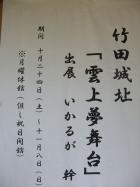 竹田城址
「雲上夢舞台」
出展 いかるが 幹
期間 十月二十四日(土)~十一月八日(日)
※月曜休館(但し祝日開館)